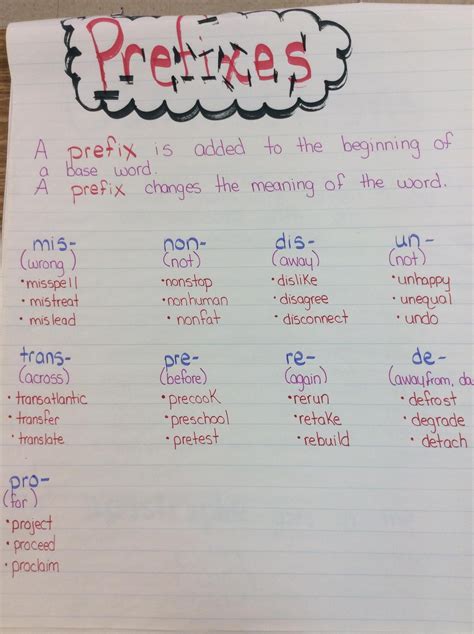 Prefixes
A prefix is added to the beginning of
a base word.
A prefix changes the meaning of the word.
mis- non- dis- un-
(wrong) (not) (away) (not)
•misspell •nonstop •dislike •unhappy
•mistreat •nonhuman •disagree •unequal
•mislead •nonfat •disconnect •undo
trans- pre- re- de-
(across) (before) (again) (away from,
•transatlantic •precook •rerun •defrost
•transfer •preschool •retake •degrade
•translate •pretest •rebuild •detach
pro-
(for)
•project
•proceed
•proclaim